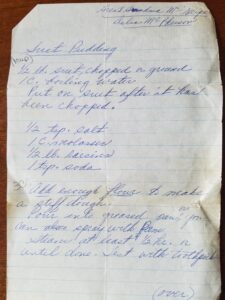 Great Grandma Mc
Delia Mc Pherson
Suet Pudding
(cup)
1/2 lb suet, chopped or ground
1 C. boiling water
Put on suet after it has
been chopped.
1/2 tsp. salt
1 C. molasses
1/2 lb. raisins
1 tsp. soda
Add enough flour to make
a stiff dough.
Pour into greased pan or you
can also spray with Pam
Steam at least 1/2 hr. or
until done. Test with toothpick
(over)